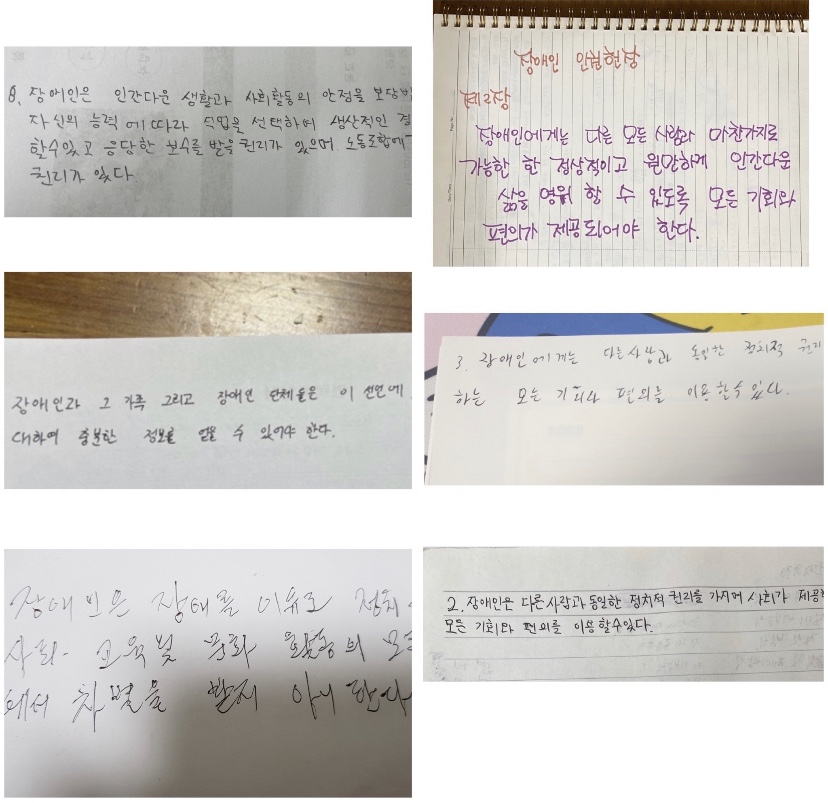 8. 장애인은 인간다운 생활과 사회활동의 안정을 보장받
자신의 능력에 따라 직업을 선택하여 생산적인
할수있고 응당한 보수를 받을 권리가 있으며 노동조합에
권리가 있다.
장애인 인권헌장
제2장
장애인에게는 다른 모든 사람과 마찬가지로
가능한 한 정상적이고 원만하게 인간다운
삶을 영위 할 수 있도록 모든 기회와
편의가 제공되어야 한다.
장애인과 그 가족 그리고 장애인 단체들은 이 선언에
대하여 충분한 정보를 얻을 수 있어야 한다.
3. 장애인에게는 다른사람과 동일한 정치적 권리
하는 모든 기회와 편의를 이용할수 있다.
장애인은 장애를 이유로 정치
사회. 교육및 문화 활동의 모든
에서 차별을 받지 아니한다
2. 장애인은 다른사람과 동일한 정치적 권리를 가지며 사회가 제공
모든 기회와 편의를 이용할수있다.